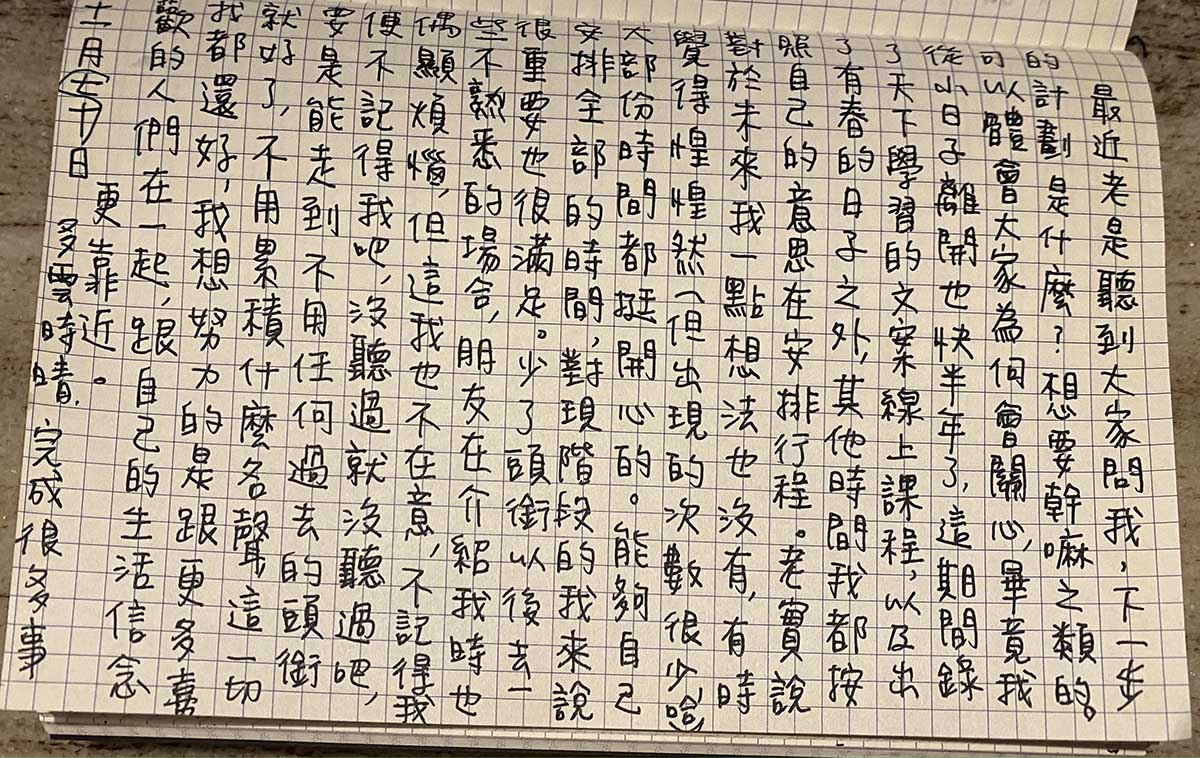 最近老是聽到大家問我，下一步
的計劃是什麼？想要幹嘛之類的。
可以體會大家為何會關心，畢竟我
從小日子離開也快半年了，這期間錄
了天下學習的文案線上課程，以及出
了有春的日子之外，其他時間我都按
照自己的意思在安排行程。老實說
對於未來我一點想法也沒有，有時
覺得惶惶然（但出現的次數很少哈）
大部份時間都挺開心的。能夠自己
安排全部的時間，對現階段的我來說
很重要也很滿足。少了頭銜以後去一
些不熟悉的場合，朋友在介紹我時也
偶顯煩惱，但這我也不在意，不記得我
便不記得我吧，沒聽過就沒聽過吧，
要是能走到不用任何過去的頭銜
就好了，不用累積什麼名聲這一切
我都還好，我想努力的是跟更多喜
歡的人們在一起，跟自己的生活信念
更靠近。
十一月二十日 多雲時晴 完成很多事